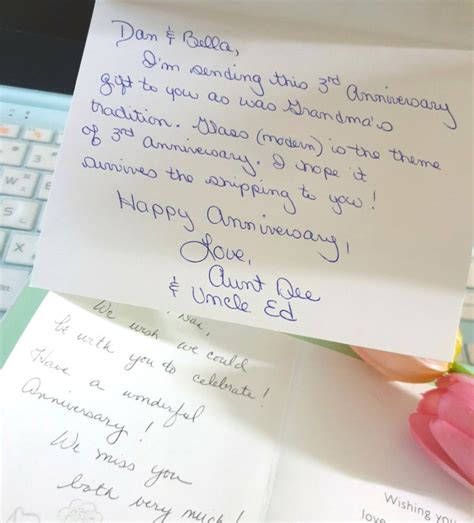 Dan & Bella,
I'm sending this 3rd Anniversary
gift to you as was Grandma's
tradition. Glass (modern) is the theme
of 3rd anniversary. I hope it
survives the shipping to you!
Happy Anniversary!
Love,
Aunt Dee
& Uncle Ed
We wish we could
be with you to celebrate!
Have a wonderful
Anniversary!
We miss you
both very much!
Wishing you
love
W
S
X